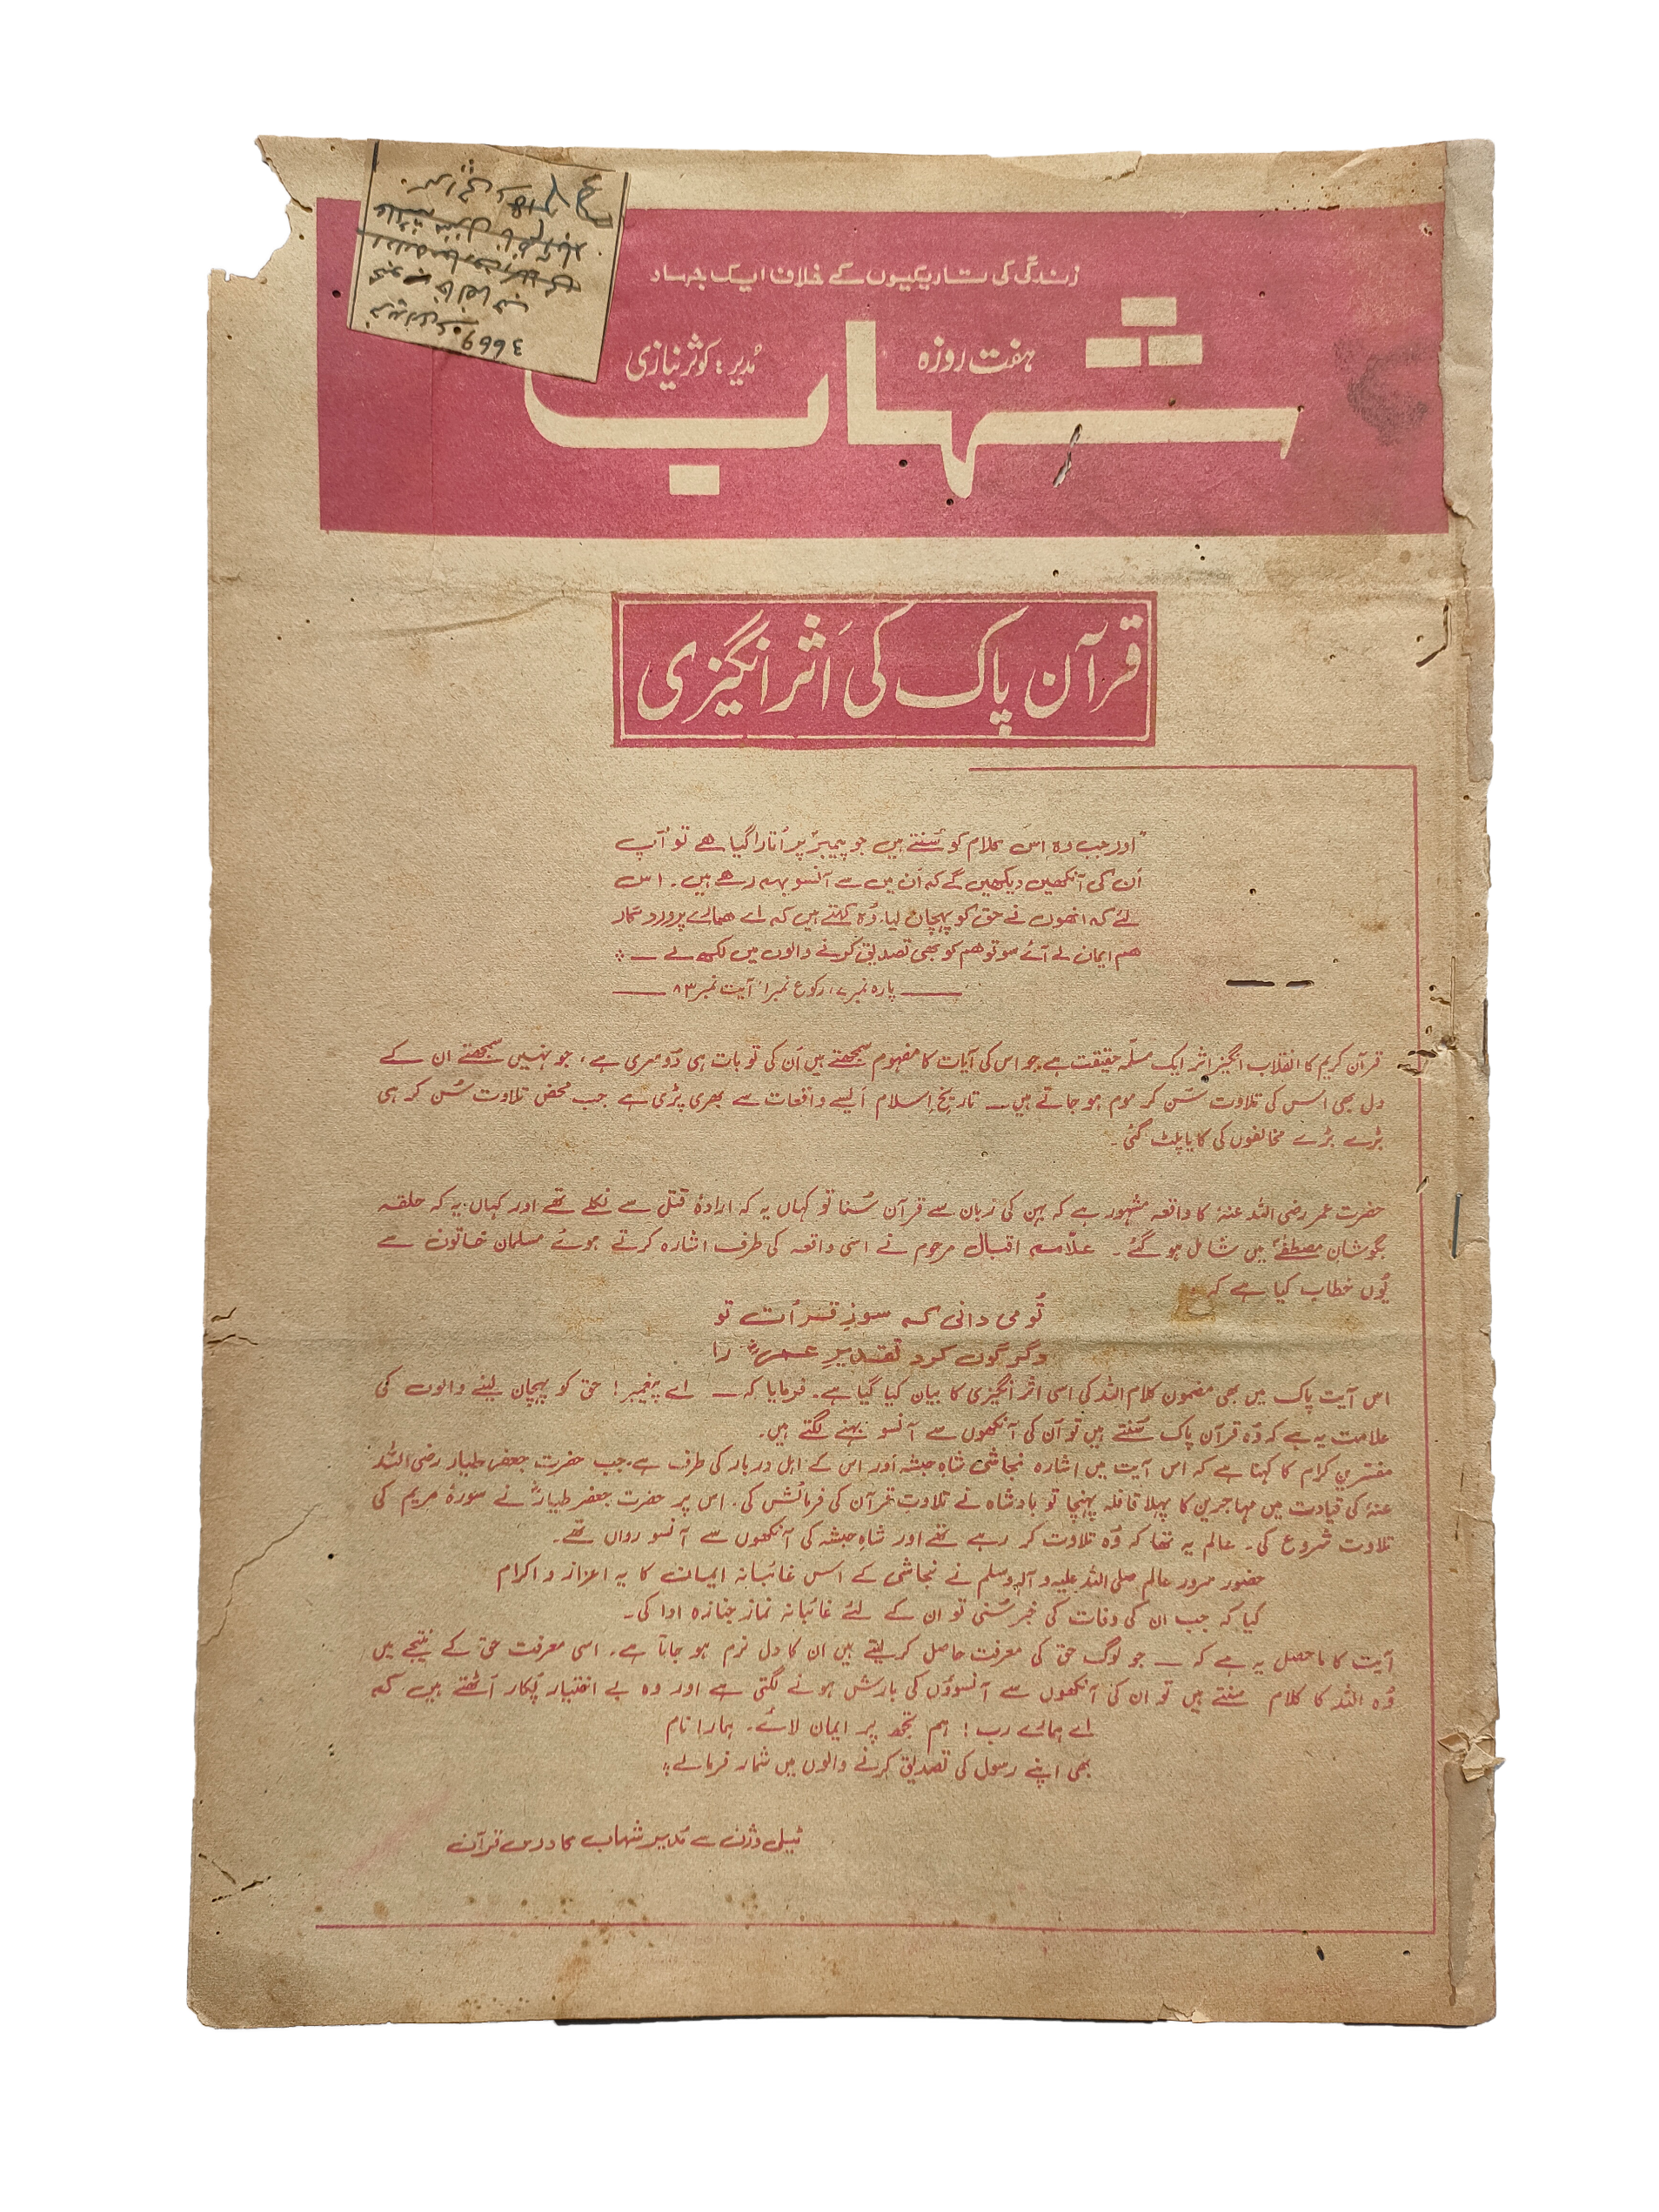 زندگی کی تاریکیوں کے خلاف ایک جہاد
ہفت روزہ
شہاب
مُدیر: کوثر نیازی
3669
قرآن پاک کی اَثر انگیزی
"اور جب وہ اِس کلام کو سُنتے ہیں جو پیمبرؐ پر اُتارا گیا ھے تو آپ
اُن کی آنکھیں دیکھیں گے کہ اُن میں سے آنسو بہہ رھے ہیں۔ اس
لئے کہ انھوں نے حق کو پہچان لیا، وُہ کہتے ہیں کہ اے ھمارے پروردگار
ھم ایمان لے آئے سو تو ھم کو بھی تصدیق کرنے والوں میں لکھ لے ــ
ــــ پارہ نمبر ۷، رکوع نمبر ۱، آیت نمبر ۸۳ ــــ
قرآن کریم کا انقلاب انگیز اثر ایک مسلّمہ حقیقت ہے جو اس کی آیات کا مفہوم سمجھتے ہیں اُن کی تو بات ہی دُوسری ہے، جو نہیں سمجھتے ان کے
دل بھی اس کی تلاوت سُن کر موم ہو جاتے ہیں ــ تاریخِ اِسلام ایسے واقعات سے بھری پڑی ہے جب محض تلاوت سُن کر ہی
بڑے بڑے مخالفوں کی کایا پلٹ گئی۔
حضرت عمر رضی اللہ عنہٗ کا واقعہ مشہور ہے کہ بہن کی زبان سے قرآن سُنا تو کہاں یہ کہ ارادۂ قتل سے نکلے تھے اور کہاں یہ کہ حلقہ
بگوشانِ مصطفےٰؐ میں شامل ہو گئے۔ علّامہ اقبال مرحوم نے اسی واقعہ کی طرف اشارہ کرتے ہوئے مسلمان خاتون سے
یُوں خطاب کیا ہے کہ
تُو می دانی کہ سوزِ قرأت تو
دگرگوں کرد تقدیرِ عمرؓ را
اس آیت پاک میں بھی مضمون کلام اللہ کی اسی اثر انگیزی کا بیان کیا گیا ہے۔ فرمایا کہ ــ اے پیغمبر! حق کو پہچان لینے والوں کی
علامت یہ ہے کہ وُہ قرآن پاک سُنتے ہیں تو اُن کی آنکھوں سے آنسو بہنے لگتے ہیں۔
مفسّرینِ کرام کا کہنا ہے کہ اس آیت میں اشارہ نجاشی شاہِ حبشہ اور اس کے اہلِ دربار کی طرف ہے۔ جب حضرت جعفر طیار رضی اللہ
عنہٗ کی قیادت میں مہاجرین کا پہلا قافلہ پہنچا تو بادشاہ نے تلاوتِ قرآن کی فرمائش کی۔ اس پر حضرت جعفر طیارؓ نے سورۂ مریم کی
تلاوت شروع کی۔ عالم یہ تھا کہ وُہ تلاوت کر رہے تھے اور شاہِ حبشہ کی آنکھوں سے آنسو رواں تھے۔
حضور سرورِ عالم صلی اللہ علیہ وآلہٖ وسلم نے نجاشی کے اس غائبانہ ایمان کا یہ اعزاز و اکرام
کیا کہ جب ان کی وفات کی خبر سُنی تو ان کے لئے غائبانہ نماز جنازہ ادا کی۔
آیت کا ماحصل یہ ہے کہ ــ جو لوگ حق کی معرفت حاصل کر لیتے ہیں ان کا دل نرم ہو جاتا ہے۔ اسی معرفت حق کے نتیجے میں
وُہ اللہ کا کلام سنتے ہیں تو ان کی آنکھوں سے آنسوؤں کی بارش ہونے لگتی ہے اور وہ بے اختیار پُکار اُٹھتے ہیں کہ
اے ہمارے رب! ہم تجھ پر ایمان لائے۔ ہمارا نام
بھی اپنے رسول کی تصدیق کرنے والوں میں شمار فرمالے۔
ٹیلی وژن سے مُدیر شہاب کا درسِ قرآن